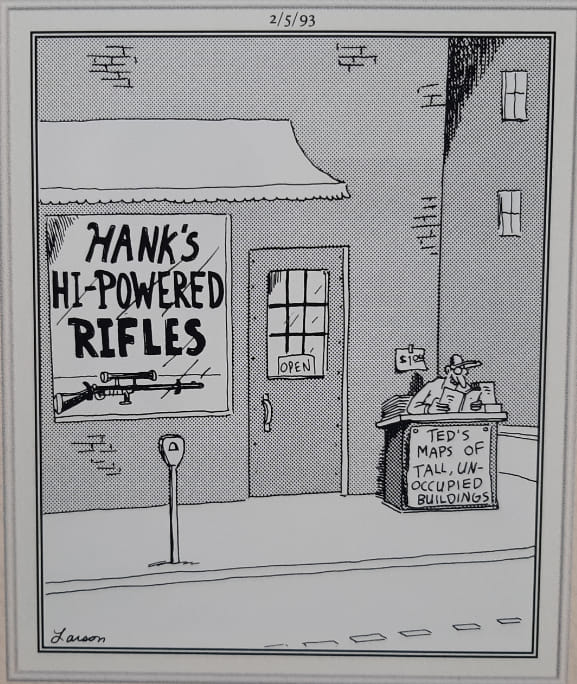 2/5/93
HANK'S
HI-POWERED
RIFLES
OPEN
$1.00
TED'S
MAPS OF
TALL, UN-
OCCUPIED
BUILDINGS
Larson